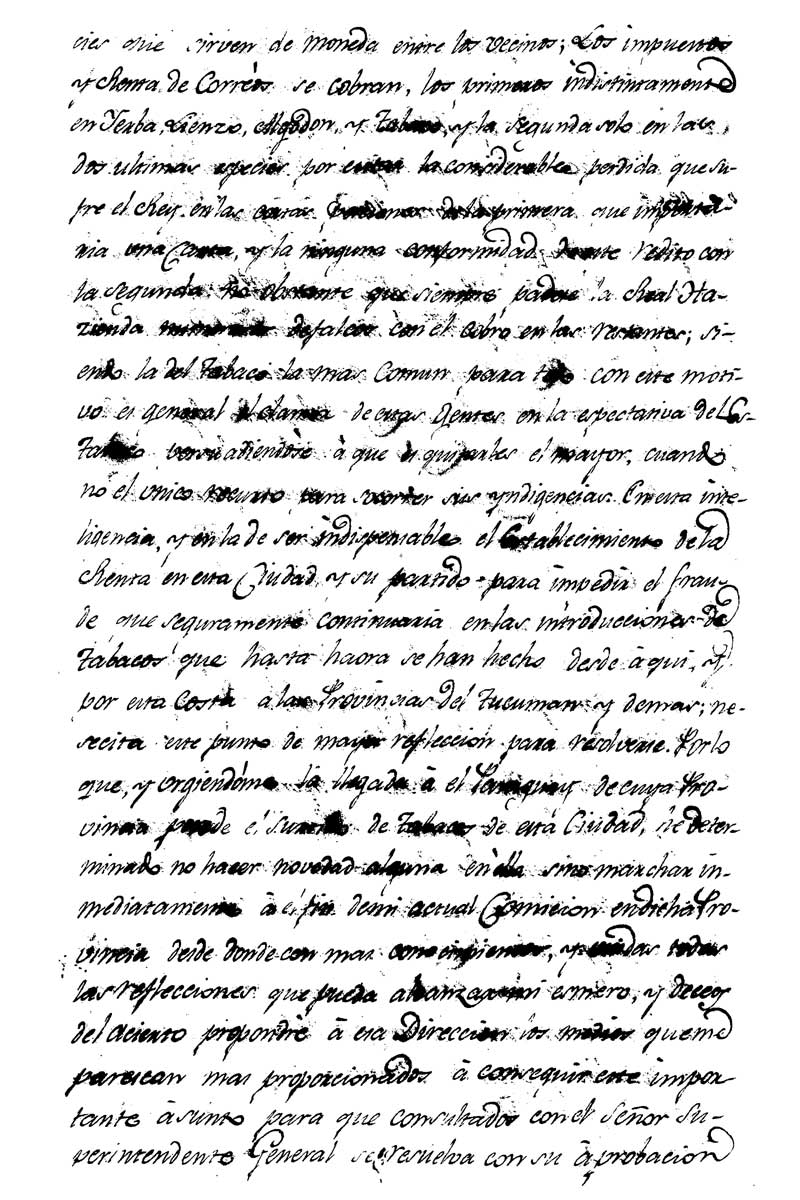 cies que sirven de moneda entre los vecinos; Los impuestos
y Renta de Correos se cobran, los primeros indistintamente
en Yerba, Lienzo, Algodon, y Tabaco, y la Segunda solo en las
dos ultimas especies por evitar la considerable perdida que su-
fre el Rey en las de la primera que
ria una y la ninguna conformidad de este redito con
la segunda: no obstante que siempre padece la Real Ha-
zienda defalcos con el cobro en las restantes; si-
endo la del Tabaco la mas comun para todo con este moti-
vo es general el clamor de estas Gentes en la espectativa del Es-
Tabaco persuadiendose à que es quitarles el mayor, cuando
no el unico recurso para socorrer sus yndigencias. En esta inte-
ligencia, y en la de ser indispensable el Establecimiento de la
Renta en esta Ciudad, y su partido para impedir el frau-
de que seguramente continuaria en las introducciones de
Tabacos que hasta haora se han hecho desde àqui, y
por esta Costa a las Provincias del Tucuman y demas; ne-
secita este punto de mayor refleccion para resolverse. Por lo
que, y urgiendome la llegada à el Paraguay de cuya Pro-
vincia pende el surtido de Tabacos de esta Ciudad, he deter-
minado no hacer novedad alguna en ella sino marchar in-
mediatamente à el fin de mi actual Comicion en dicha Pro-
vincia desde donde con mas conocimientos, y todas
las reflecciones que pueda alcanzar mi esmero, y deceo
del acierto propondrè à esa Direccion los medios que me
parescan mas proporcionados à conseguir este impor-
tante àsunto para que consultados con el Señor Su-
perintendente General se resuelva con su àprobacion